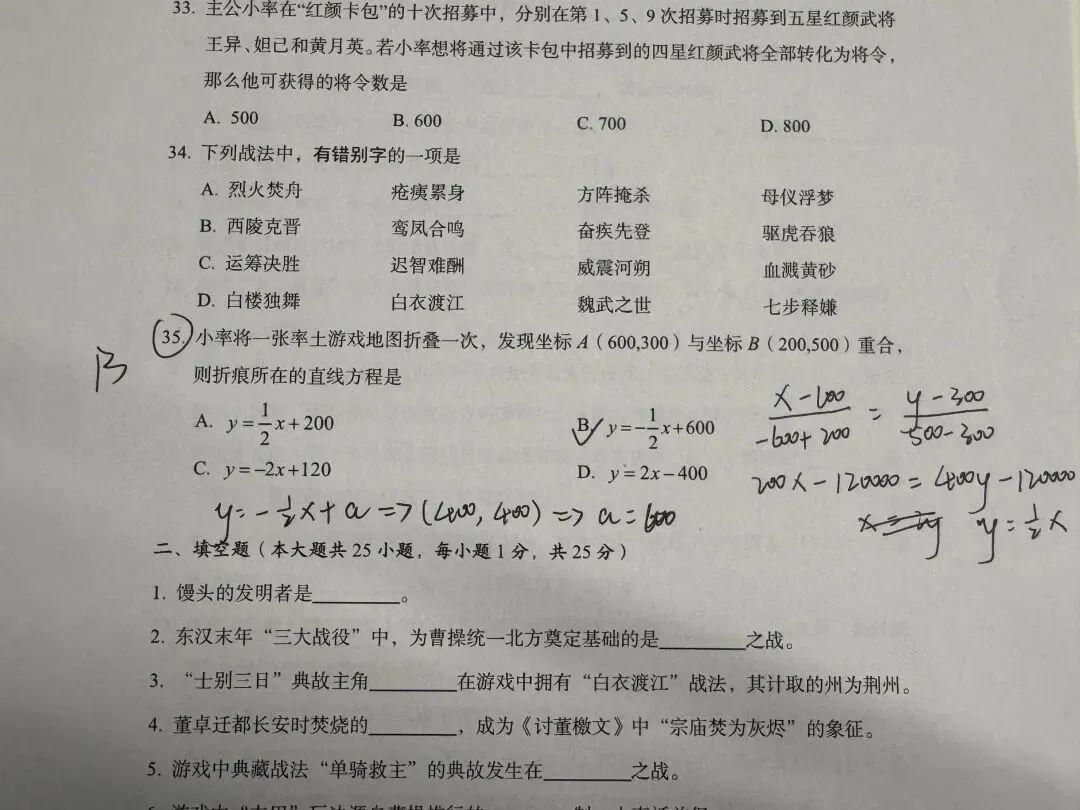 33. 主公小率在“红颜卡包”的十次招募中，分别在第 1、5、9 次招募时招募到五星红颜武将
王异、妲己和黄月英。若小率想将通过该卡包中招募到的四星红颜武将全部转化为将令，
那么他可获得的将令数是
A. 500 B. 600 C. 700 D. 800
34. 下列战法中，有错别字的一项是
A. 烈火焚舟 疮痍累身 方阵掩杀 母仪浮梦
B. 西陵克晋 鸾凤合鸣 奋疾先登 驱虎吞狼
C. 运筹决胜 迟智难酬 威震河朔 血溅黄砂
D. 白楼独舞 白衣渡江 魏武之世 七步释嫌
35. 小率将一张率土游戏地图折叠一次，发现坐标 A（600,300）与坐标 B（200,500）重合，
B
则折痕所在的直线方程是
A. y=1/2x+200 B. y=-1/2x+600
C. y=-2x+120 D. y=2x-400
(x-600)/(-600+200) = (y-300)/(500-300)
200x-120000=400y-120000
y=1/2x
y=-1/2x+a=>(400,400)=>a=600
二、填空题（本大题共 25 小题，每小题 1 分，共 25 分）
1. 馒头的发明者是________。
2. 东汉末年“三大战役”中，为曹操统一北方奠定基础的是________之战。
3. “士别三日”典故主角________在游戏中拥有“白衣渡江”战法，其计取的州为荆州。
4. 董卓迁都长安时焚烧的________，成为《讨董檄文》中“宗庙焚为灰烬”的象征。
5. 游戏中典藏战法“单骑救主”的典故发生在________之战。